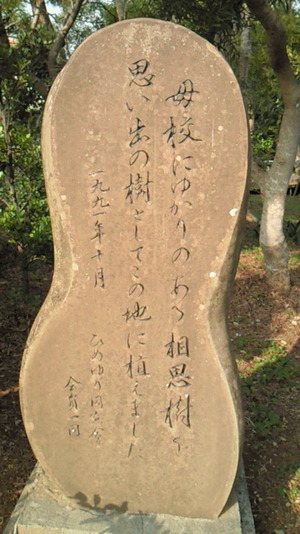 母校にゆかりのある相思樹を
思い出の樹としてこの地に植えました
一九九一年十月
ひめゆり同窓会
会員一同